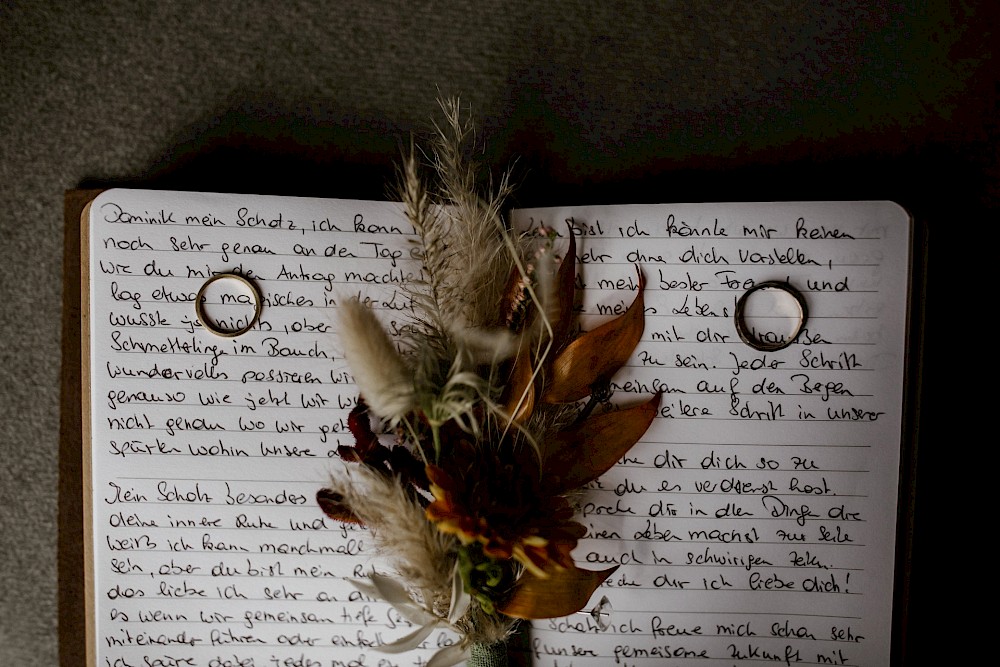 Dominik mein Schatz, ich kann
noch sehr genau an den Tag
wie du mir den Antrag machtest
lag etwas magisches in der Luft
wusste ja nichts, aber
Schmetterlinge im Bauch,
wundervolles passieren
genauso wie jetzt wir
nicht genau wo wir
spürten wohin unsere
Mein Schatz besonders
deine innere Ruhe und
weiß ich kann manchmal
sein, aber du bist mein
das liebe ich sehr an
es wenn wir gemeinsam tiefe
miteinander führen oder einfach
ich spüre dabei jedes mal
bist ich könnte mir keinen
mehr ohne dich vorstellen,
mein bester und
meines Lebens
mit dir draußen
zu sein. Jeder Schritt
auf den Bergen
weitere Schritt in unserer
dir dich so zu
du es verdienst hast.
dir in allen Dinge die
Leben machst zur Seite
auch in schwirigen Zeiten.
dir ich liebe dich!
Schatz ich freue mich schon sehr
auf unsere gemeinsame Zukunft mit